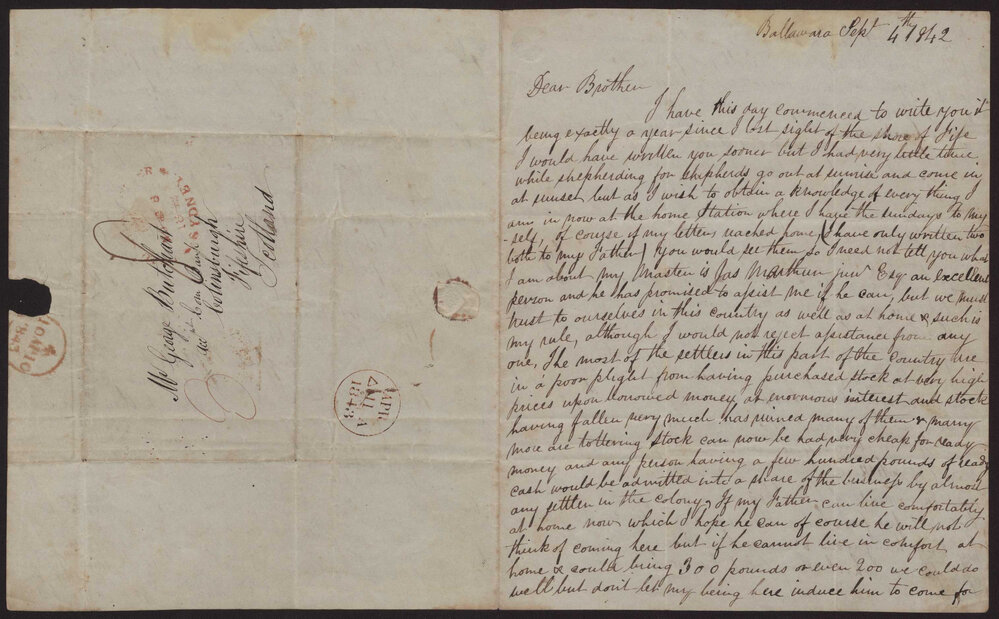 Mr George Buchanan
Colinsburgh
Fifeshire
Scotland
SYDNEY
APR
1843
A
Ballawara Sept 4th 1842
Dear Brother
I have this day commenced to write you it
being exactly a year since I lost sight of the shore of Fife
I would have written you sooner but I had very little time
while shepherding for shepherds go out at sunrise and come in
at sunset but as I wish to obtain a knowledge of every thing I
am in now at the home Station where I have the sundays to my
-self, of course if my letters reached home (I have only written two
both to my Father) you would see them so I need not tell you what
I am about my Master is Jas McArthur junr Esqr an excellent
person and he has promised to assist me if he can, but we must
trust to ourselves in this country as well as at home & such is
my rule, although I would not reject assistance from any
one, The most of the settlers in this part of the country are
in a poor plight from having purchased stock at very high
prices upon borrowed money at enormous interest and stock
having fallen very much has ruined many of them & many
more are tottering stock can now be had very cheap for ready
money and any person having a few hundred pounds of ready
cash would be admitted into a share of the business by almost
any settler in the colony, If my Father can live comfortably
at home now which I hope he can of course he will not
think of coming here but if he cannot live in comfort at
home & could bring 300 pounds or even 200 we could do
well but don't let my being here induce him to come for